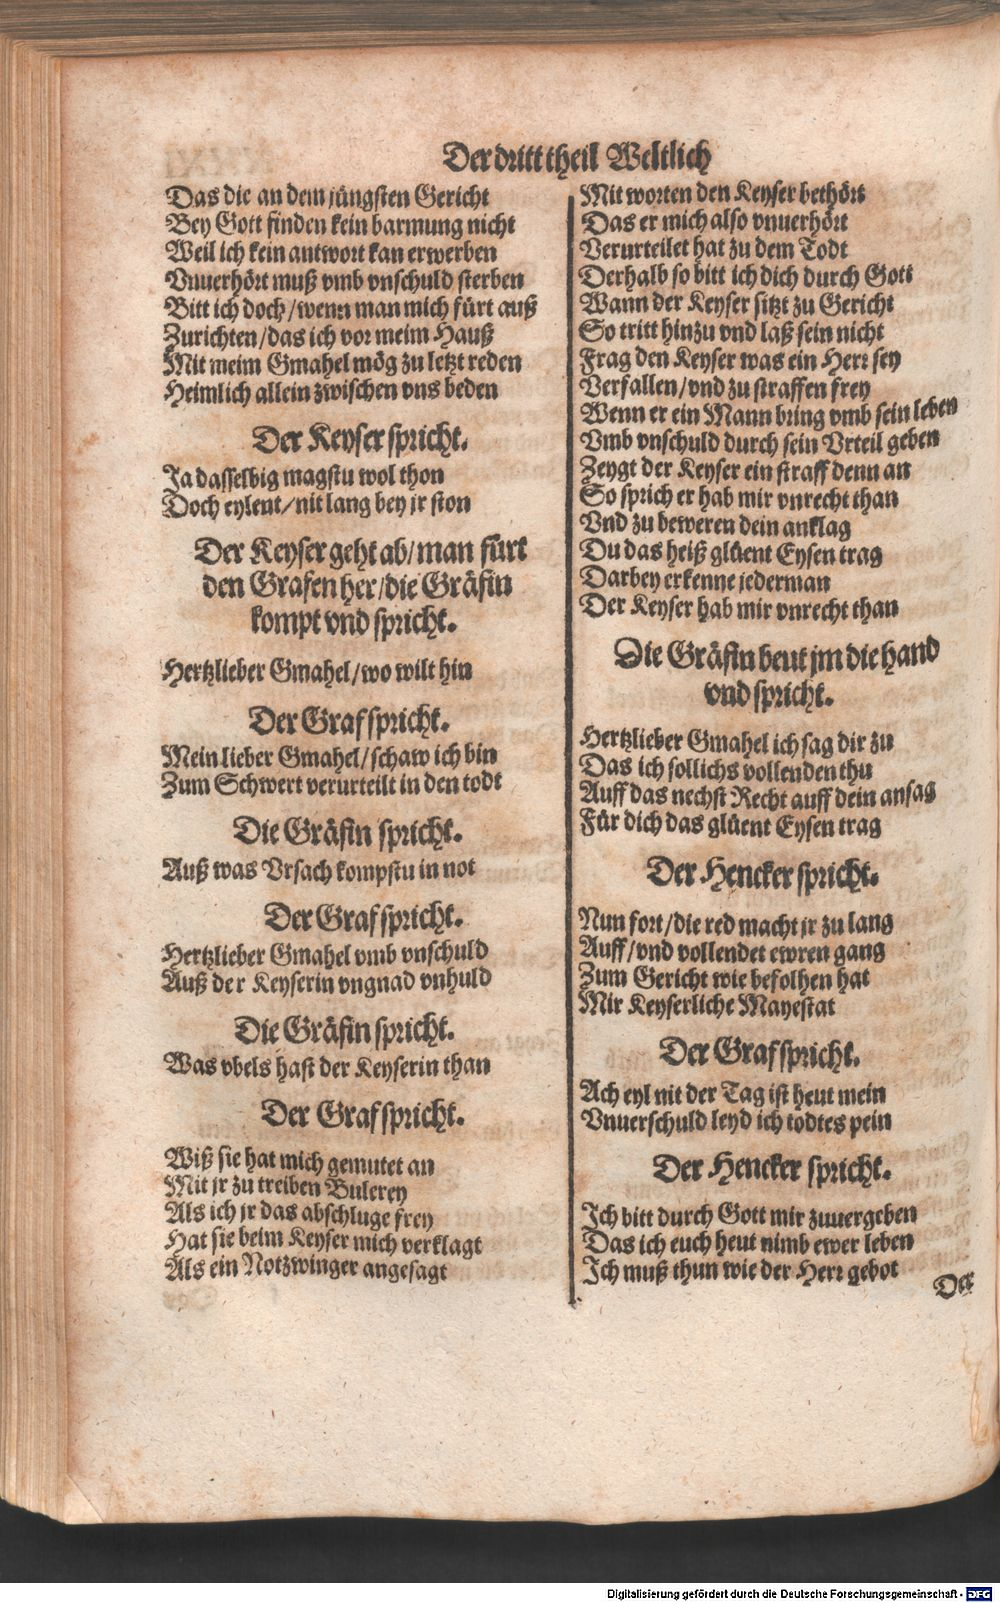 Der dritt theil Weltlich
Das die an dem jüngsten Gericht
Bey Gott finden kein barmung nicht
Weil ich kein antwort kan erwerben
Vnuerhört muß vmb vnschuld sterben
Bitt ich doch/wenn man mich fürt auß
Zurichten/das ich vor meim Hauß
Mit meim Gmahel mög zu letzt reden
Heimlich allein zwischen vns beden
Der Keyser spricht.
Ja dasselbig magstu wol thon
Doch eylent/nit lang bey jr ston
Der Keyser geht ab/man fürt
den Grafen her/die Gräfin
kompt vnd spricht.
Hertzlieber Gmahel/wo wilt hin
Der Graf spricht.
Mein lieber Gmahel/schaw ich bin
Zum Schwert verurteilt in den todt
Die Gräfin spricht.
Auß was Vrsach kompstu in not
Der Graf spricht.
Hertzlieber Gmahel vmb vnschuld
Auß der Keyserin vngnad vnhuld
Die Gräfin spricht.
Was vbels hast der Keyserin than
Der Graf spricht.
Wiß sie hat mich gemutet an
Mit jr zu treiben Bulerey
Als ich jr das abschluge frey
Hat sie beim Keyser mich verklagt
Als ein Notzwinger angesagt
Mit worten den Keyser bethört
Das er mich also vnuerhört
Verurteilet hat zu dem Todt
Derhalb so bitt ich dich durch Gott
Wann der Keyser sitzt zu Gericht
So tritt hinzu vnd laß sein nicht
Frag den Keyser was ein Herr sey
Verfallen/vnd zu straffen frey
Wenn er ein Mann bring vmb sein leben
Vmb vnschuld durch sein Vrteil geben
Zeygt der Keyser ein straff denn an
So sprich er hab mir vnrecht than
Vnd zu beweren dein anklag
Du das heiß glüent Eysen trag
Darbey erkenne jederman
Der Keyser hab mir vnrecht than
Die Gräfin beut jm die hand
vnd spricht.
Hertzlieber Gmahel ich sag dir zu
Das ich sollichs vollenden thu
Auff das nechst Recht auff dein ansag
Für dich das glüent Eysen trag
Der Hencker spricht.
Nun fort/die red macht jr zu lang
Auff/vnd vollendet ewren gang
Zum Gericht wie befolhen hat
Mir Keyserliche Mayestat
Der Graf spricht.
Ach eyl nit der Tag ist heut mein
Vnuerschuld leyd ich todtes pein
Der Hencker spricht.
Ich bitt durch Gott mir zuuergeben
Das ich euch heut nimb ewer leben
Ich muß thun wie der Herr gebot
Der
Digitalisierung gefördert durch die Deutsche Forschungsgemeinschaft - DFG